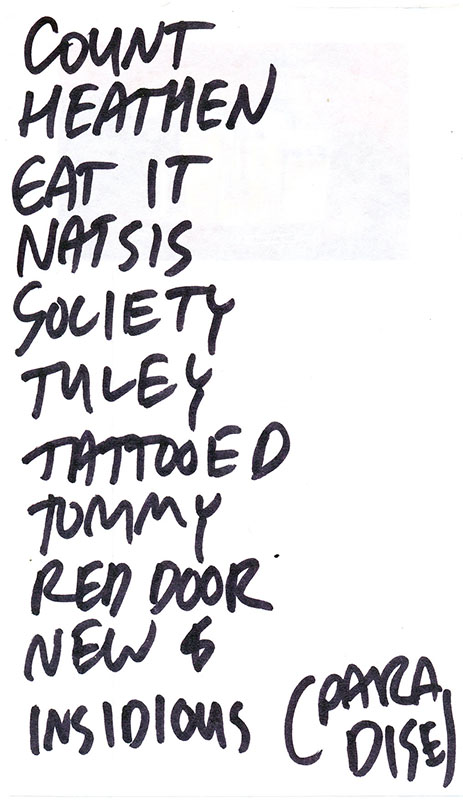 COUNT
HEATHEN
EAT IT
NATSIS
SOCIETY
TULEY
TATTOOED
TOMMY
RED DOOR
NEW 6
INSIDIOUS (PARA
DISE)